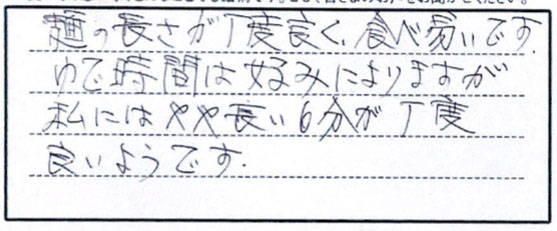 麺の長さが丁度良く、食べ易いです。
ゆで時間は好みによりますが
私にはやや長い6分が丁度
良いようです.